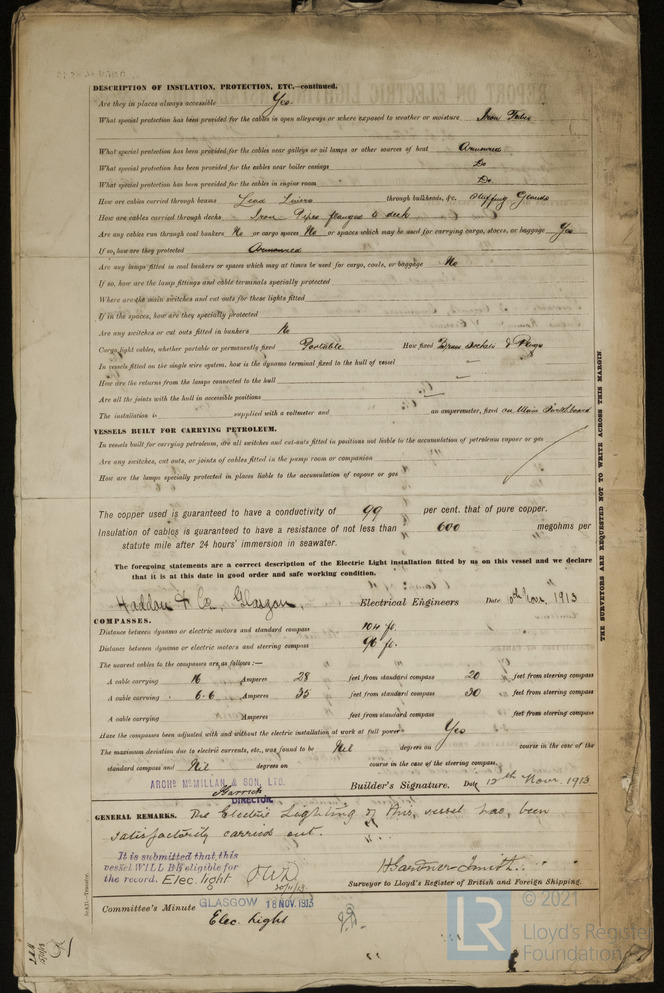 DESCRIPTION OF INSULATION, PROTECTION, ETC.—continued.
Are they in places always accessible Yes
What special protection has been provided for the cables in open alleyways or where exposed to weather or moisture Iron Tubes
What special protection has been provided for the cables near galleys or oil lamps or other sources of heat Armoured
What special protection has been provided for the cables near boiler casings Do
What special protection has been provided for the cables in engine room Do.
How are cables carried through beams Lead Liners through bulkheads, &c. Stuffing Glands
How are cables carried through decks Iron Pipes flanged to deck
Are any cables run through coal bunkers No or cargo spaces No or spaces which may be used for carrying cargo, stores, or baggage Yes
If so, how are they protected Armoured
Are any lamps fitted in coal bunkers or spaces which may at times be used for cargo, coals, or baggage No
If so, how are the lamp fittings and cable terminals specially protected
Where are the main switches and cut outs for these lights fitted
If in the spaces, how are they specially protected
Are any switches or cut outs fitted in bunkers No
Cargo light cables, whether portable or permanently fixed Portable How fixed Brass Sockets & Plugs
In vessels fitted on the single wire system, how is the dynamo terminal fixed to the hull of vessel
How are the returns from the lamps connected to the hull
Are all the joints with the hull in accessible positions
The installation is supplied with a voltmeter and an amperemeter, fixed on Main Switchboard
VESSELS BUILT FOR CARRYING PETROLEUM.
In vessels built for carrying petroleum, are all switches and cut-outs fitted in positions not liable to the accumulation of petroleum vapour or gas
Are any switches, cut outs, or joints of cables fitted in the pump room or companion
How are the lamps specially protected in places liable to the accumulation of vapour or gas
The copper used is guaranteed to have a conductivity of 99 per cent. that of pure copper.
Insulation of cables is guaranteed to have a resistance of not less than 600 megohms per
statute mile after 24 hours' immersion in seawater.
The foregoing statements are a correct description of the Electric Light installation fitted by us on this vessel and we declare
that it is at this date in good order and safe working condition.
Haddow & Co, Glasgow, Electrical Engineers Date 10th Nov. 1913
COMPASSES.
Distance between dynamo or electric motors and standard compass 104 ft.
Distance between dynamo or electric motors and steering compass 96 ft.
The nearest cables to the compasses are as follows:—
A cable carrying 16 Amperes 28 feet from standard compass 20 feet from steering compass
A cable carrying 6.6 Amperes 35 feet from standard compass 30 feet from steering compass
A cable carrying Amperes feet from standard compass feet from steering compass
Have the compasses been adjusted with and without the electric installation at work at full power Yes
The maximum deviation due to electric currents, etc., was found to be Nil degrees on course in the case of the
standard compass and Nil degrees on course in the case of the steering compass.
ARCHD McMILLAN & SON, LTD.
DIRECTOR. Builder's Signature. Date 12th Nov. 1913
GENERAL REMARKS. The Electric Lighting of this vessel has been
satisfactorily carried out.
It is submitted that this
vessel WILL BE eligible for
the record. Elec. light
H Gardner-Smith
Surveyor to Lloyd's Register of British and Foreign Shipping.
Committee's Minute GLASGOW 18 NOV. 1913
Elec. Light
THE SURVEYORS ARE REQUESTED NOT TO WRITE ACROSS THIS MARGIN
LR
© 2021
Lloyd's Register
Foundation